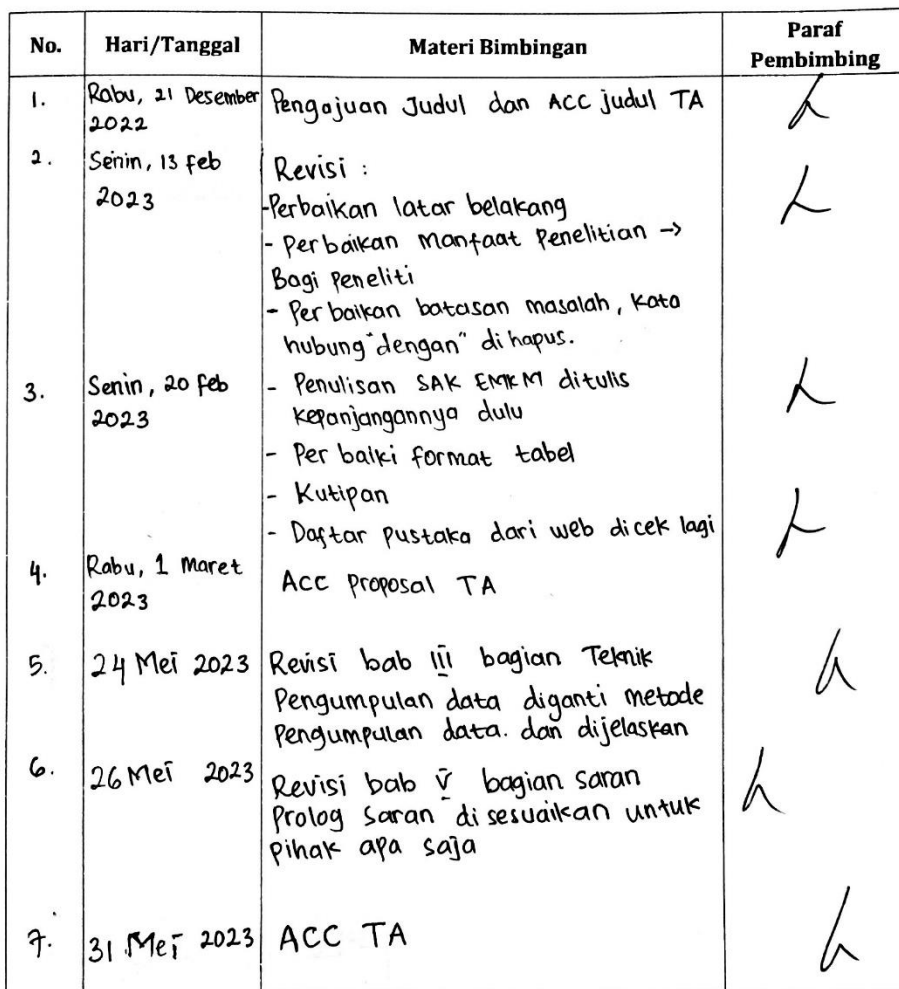 No. Hari/Tanggal Materi Bimbingan Paraf
Pembimbing
1. Rabu, 21 Desember Pengajuan Judul dan ACC judul TA
2022
2. Senin, 13 feb Revisi :
2023 -Perbaikan latar belakang
- Perbaikan Manfaat Penelitian →
Bagi Peneliti
- Perbaikan batasan masalah, kata
hubung "dengan" di hapus.
3. Senin, 20 feb - Penulisan SAK EMKM ditulis
2023 kepanjangannya dulu
- Perbaiki format tabel
- Kutipan
- Daftar Pustaka dari web dicek lagi
4. Rabu, 1 Maret ACC Proposal TA
2023
5. 24 Mei 2023 Revisi bab III bagian Teknik
Pengumpulan data diganti metode
Pengumpulan data. dan dijelaskan
6. 26 Mei 2023 Revisi bab V bagian saran
Prolog Saran di sesuaikan untuk
Pihak apa saja
7. 31 Mei 2023 ACC TA